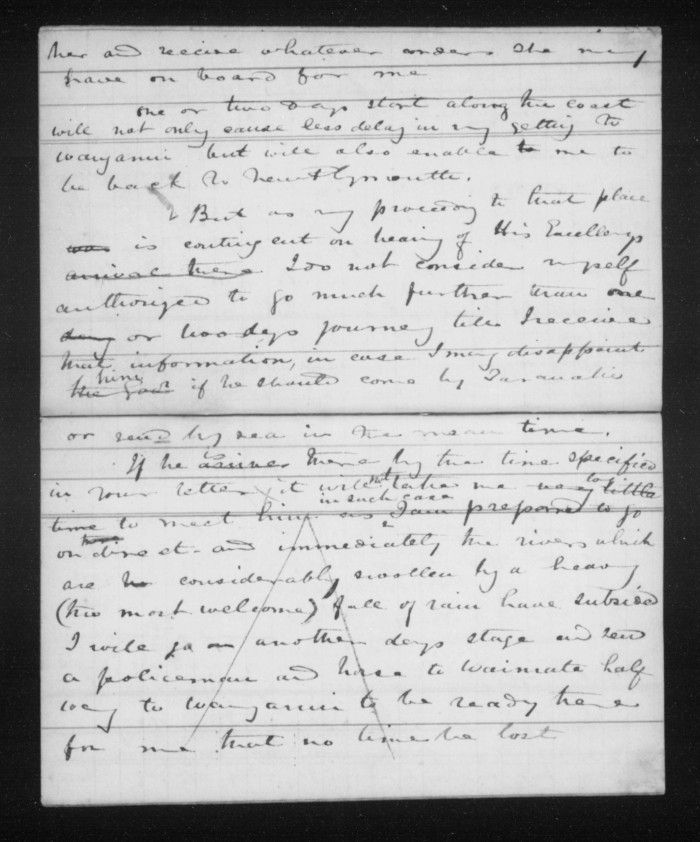 her and receive whatever orders she may
have on board for me
one or two days start along the coast
will not only cause less delay in my getting to
Wanganui but will also enable to me to
be back to New Plymouth.
But as my proceeding to that place
was is contingent on hearing of His Excellencys
arrival there I do not consider myself
authorized to go much further than one
day or two days journey till I receive
that information, in case I may disappoint
him
the Govr if he should come by Taranaki
or send by sea in the mean time.
If he arrives there by the time specified
in your letter it will not take me very little
in such case
time to meet him as I am prepared to go
on direct and immediately the rivers which
are considerably swollen by a heavy
(tho most welcome) fall of rain have subsided
I will go on another days stage and send
a policeman and horse to Waimate half
way to Wanganui to be ready there
for me that no time be lost